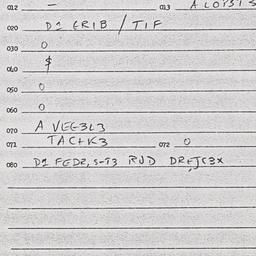 012 - 013 ALOYSIS
020 D2 ERIB / TIF
030 0
040 $
050 0
060 0
070 A VEG3L3
071 TACTK3 072 0
080 D2 FEDR, S-T3 RUD